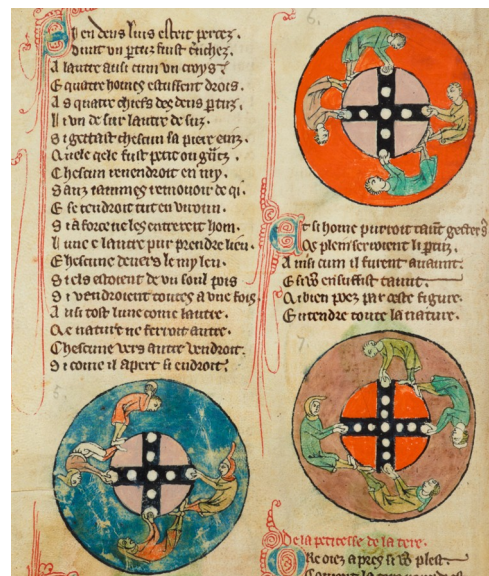 Si en deus lius esteit percez.
Dunt vn p̱tuz fust enchez.
A lautre ausi cum vn croys
E quatre homes estussent drois.
A s quatre chiefs des deus p̱tuz.
Li vn de sur lautre de suz.
S i gettast chescun sa piere enz.
Quele qele fust petit ou
Chescun reuendroit en my.
S anz iammes remouoir de qi.
E se tendroit tut en viroun.
S i a force ne les entrereit hom.
L une e lautre pur prendre lieu.
Chescune deuers le myleu.
S i els estoient de vn soul pois
S i vendroient toutes a vne fois.
A usi tost lune come lautre.
Qe nature ne ferroit autre.
Chescune vers autre vendroit.
S i come il apert si endroit.
5.
6.
Et si home purroit taunt gecter
Qe plein serroient li p̱tuz.
A insi cum il furent auaunt.
E si en suffist taunt.
Qi bien poez par ceste figure.
Entendre toute la nature.
7.
De la petitesse de la tere.
Ore oiez aprey si vo plest